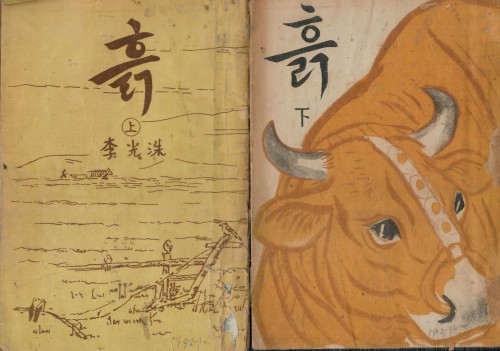 흙
上
李光洙
흙
下